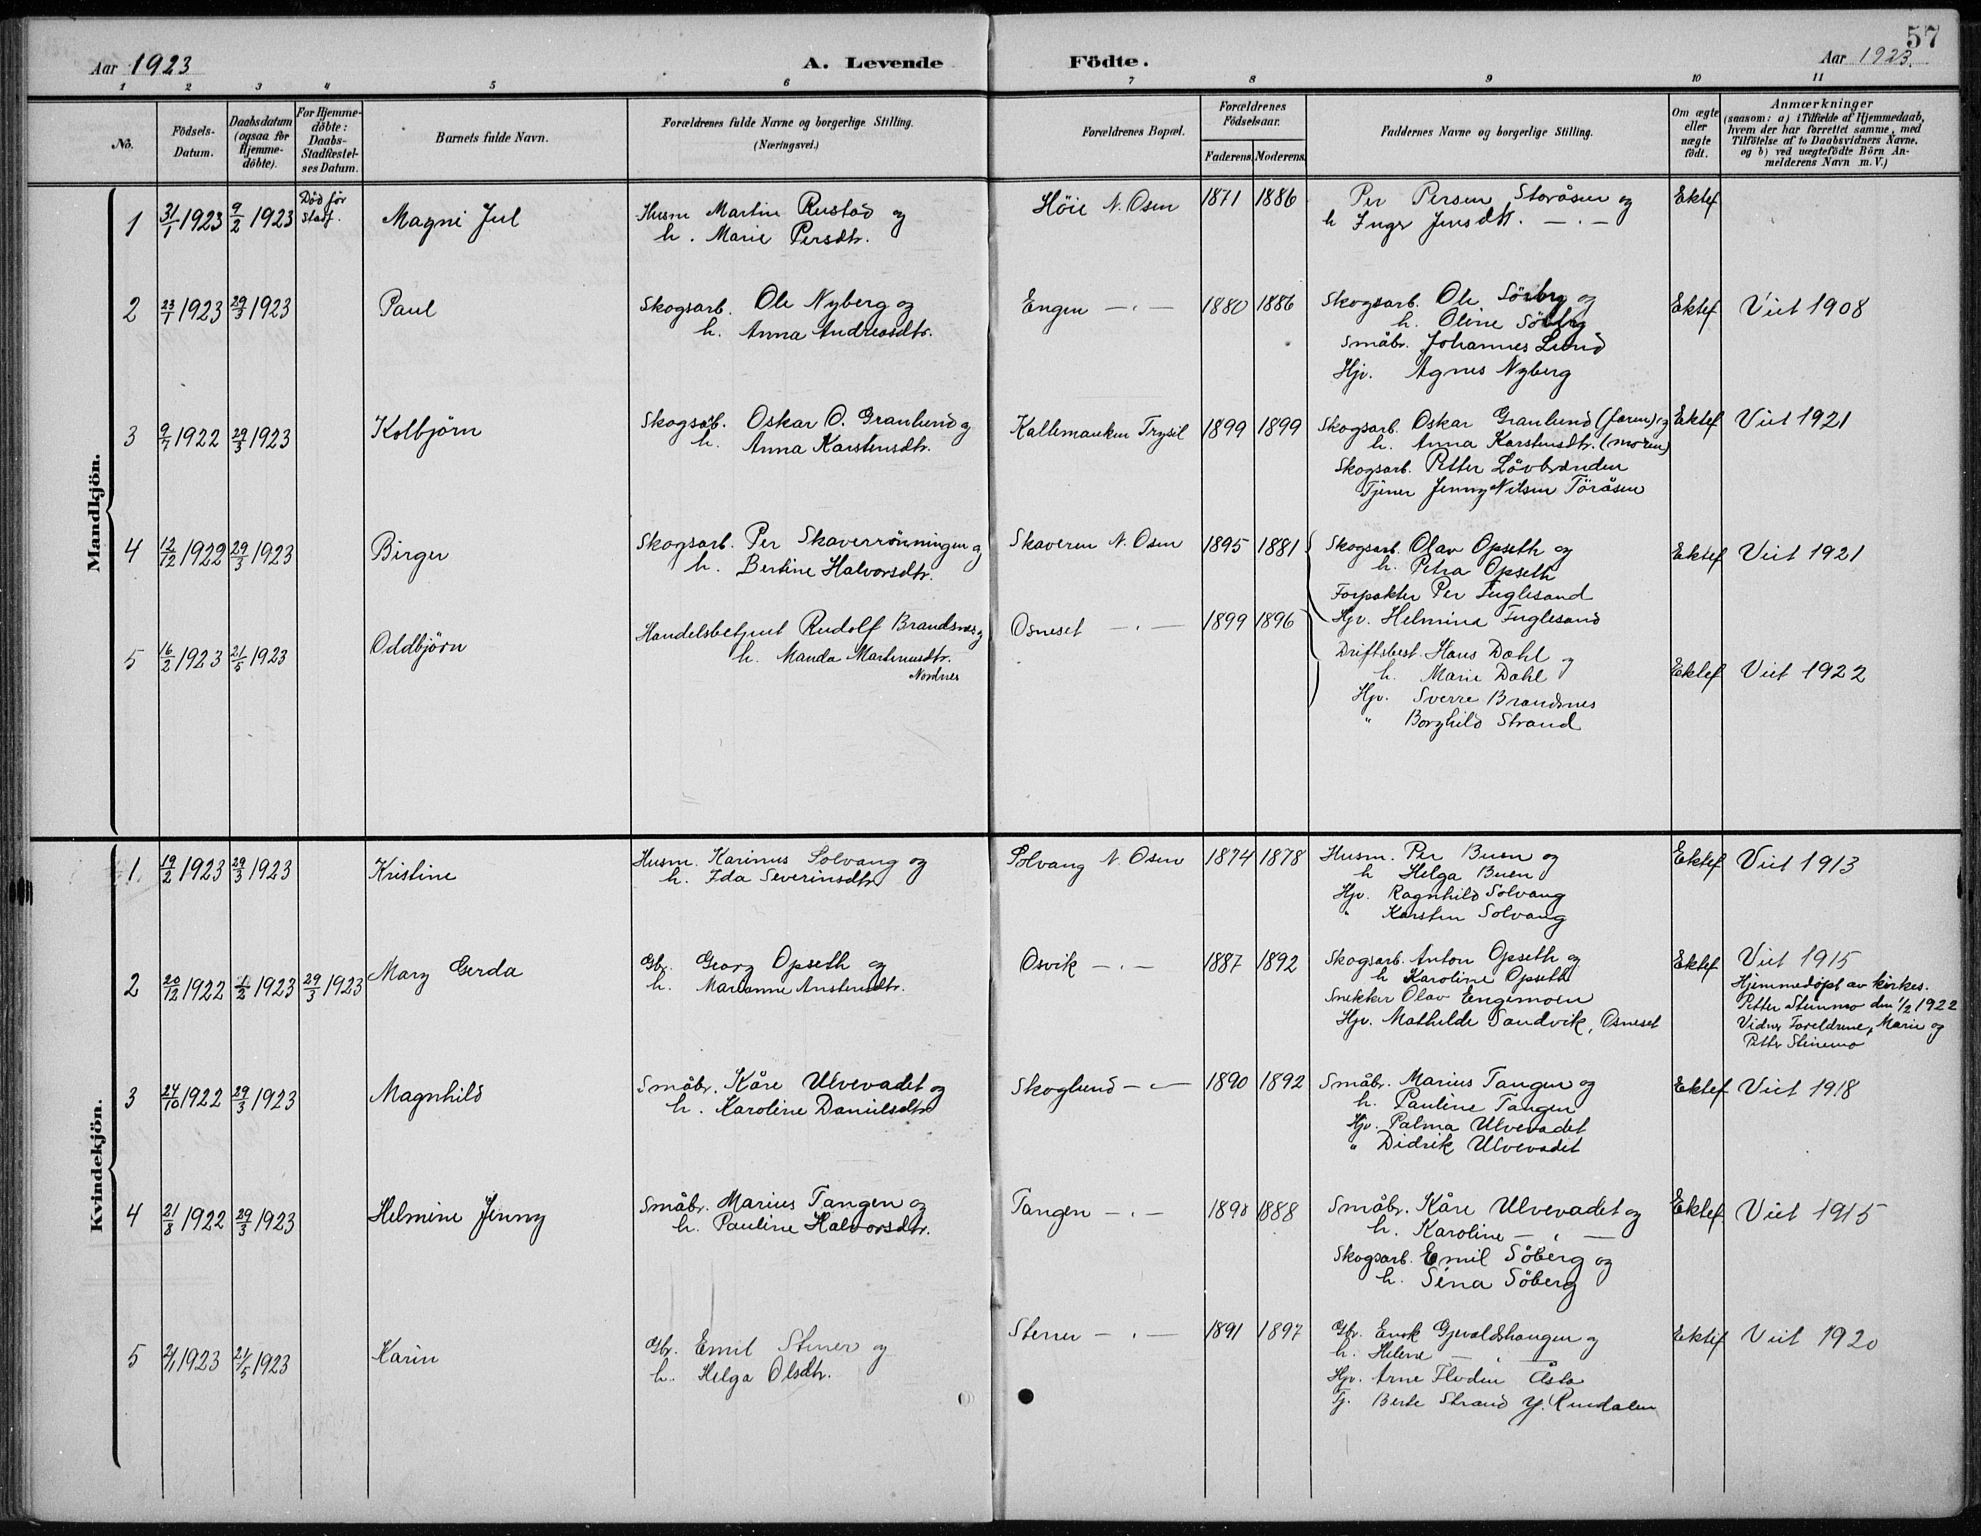 57
Aar 1923 A. Levende Födte. Aar 1923.
1 2 3 4 5 6 7 8 9 10 11
No. Födsels-Datum. Daabsdatum (ogsaa for Hjemme-döbte). For Hjemme-döbte: Daabs-Stadfæstel-ses Datum. Barnets fulde Navn. Forældrenes fulde Navne og borgerlige Stilling. (Næringsvei.) Forældrenes Bopæl. Forældrenes Födselsaar. Faderens. Moderens. Faddernes Navne og borgerlige Stilling. Om ægte eller uægte födt. Anmærkninger (saasom: a) i Tilfælde af Hjemmedaab, hvem der har forrettet samme, med Tilföielse af to Daabsvidners Navne, og b) ved uægtefödte Börn An-melderens Navn m. V.)
Mandkjön.
1 31/1 1923 9/2 1923 Død før stadf. Magne Jul Husm Martin Rustad og Höie N. Osen 1871 1886 Per Persen Storåsen og Ektef
h. Marie Persdtr. h Inger Jensdtr. — . —
2 23/1 1923 29/3 1923 Paul Skogsarb. Ole Nyberg og Engen — . — 1880 1886 Skogsarb. Ole Söberg og Ektef Viet 1908
h. Anna Andreasdtr. h. Oline Söberg
Småbr. Johannes Lund
Hjv. Agnes Nyberg
3 9/7 1922 29/3 1923 Kolbjörn Skogsarb. Oskar O. Granlund og Trysil 1899 1899 Skogsarb. Oskar Granlund (faren) og Ektef Viet 1921
h. Anna Karstensdtr. h. Anna Karstensdtr. (moren)
Skogsarb. Petter Lövbrænden
Tjener Jenny Nilsen Töråsen
4 12/12 1922 29/3 1923 Birger Skogsarb. Per Skaverrönningen og Skaveren N. Osen 1895 1881 Skogsarb. Olav Opseth og Ektef Viet 1921
h. Bertine Halvorsdtr. h. Petra Opseth
Forpakter Per Fuglesand
Hjv. Helmina Fuglesand
5 16/2 1923 21/5 1923 Oddbjørn Handelsbetjent Rudolf Brandsnes og Osneset — . — 1899 1896 Driftsbest. Hans Dahl og Ektef Viet 1922
h. Manda Martinusdtr. h. Marie Dahl
Nordnes Hjv. Sverre Brandsnes
" Borghild Strand
Kvindekjön.
1 19/2 1923 29/3 1923 Kristine Husm. Karinus Solvang og Solvang N. Osen 1874 1878 Husm. Per Buen og Ektef Viet 1913
h. Ida Severinsdtr h Helga Buen
Hjv. Ragnhild Solvang
" Karsten Solvang
2 20/12 1922 1/2 1923 29/3 1923 Mary Gerda Gbr. Georg Opseth og Osvik — . — 1887 1892 Skogsarb. Anton Opseth og Ektef Viet 1915
h. Marianne Anstensdtr. h Karoline Opseth Hjemmedøpt av kirkes.
Snekker Olav Engemoen Petter Stenmo den 1/2 1922
Hjv. Mathilde Sandvik, Osneset Vidner Foreldrene, Marie og
Petter Stenemo
3 24/10 1922 29/3 1923 Magnhild Småbr. Kåre Ulvevadet og Skoglund — . — 1890 1892 Småbr. Marius Tangen og Ektef Viet 1918
h. Karoline Danielsdtr h. Pauline Tangen
Hjv. Palma Ulvevadet
" Didrik Ulvevadet
4 21/8 1922 29/3 1923 Helmine Jenny Småbr. Marius Tangen og Tangen — . — 1888 Småbr. Kåre Ulvevadet og Ektef Viet 1915
h. Pauline Halvorsdtr. h. Karoline — . —
Skogsarb. Emil Söberg og
h. Sina Söberg
5 2/1 1923 21/5 1923 Karin Gbr. Emil Stener og Stener — . — 1891 1897 Gbr. Enok Gjevaldshaugen og Ektef Viet 1920
h. Helga Olsdtr. h. Helene — . —
Hjv. Arne Floden Åsta
Tj. Berte Strand Y. Rendalen